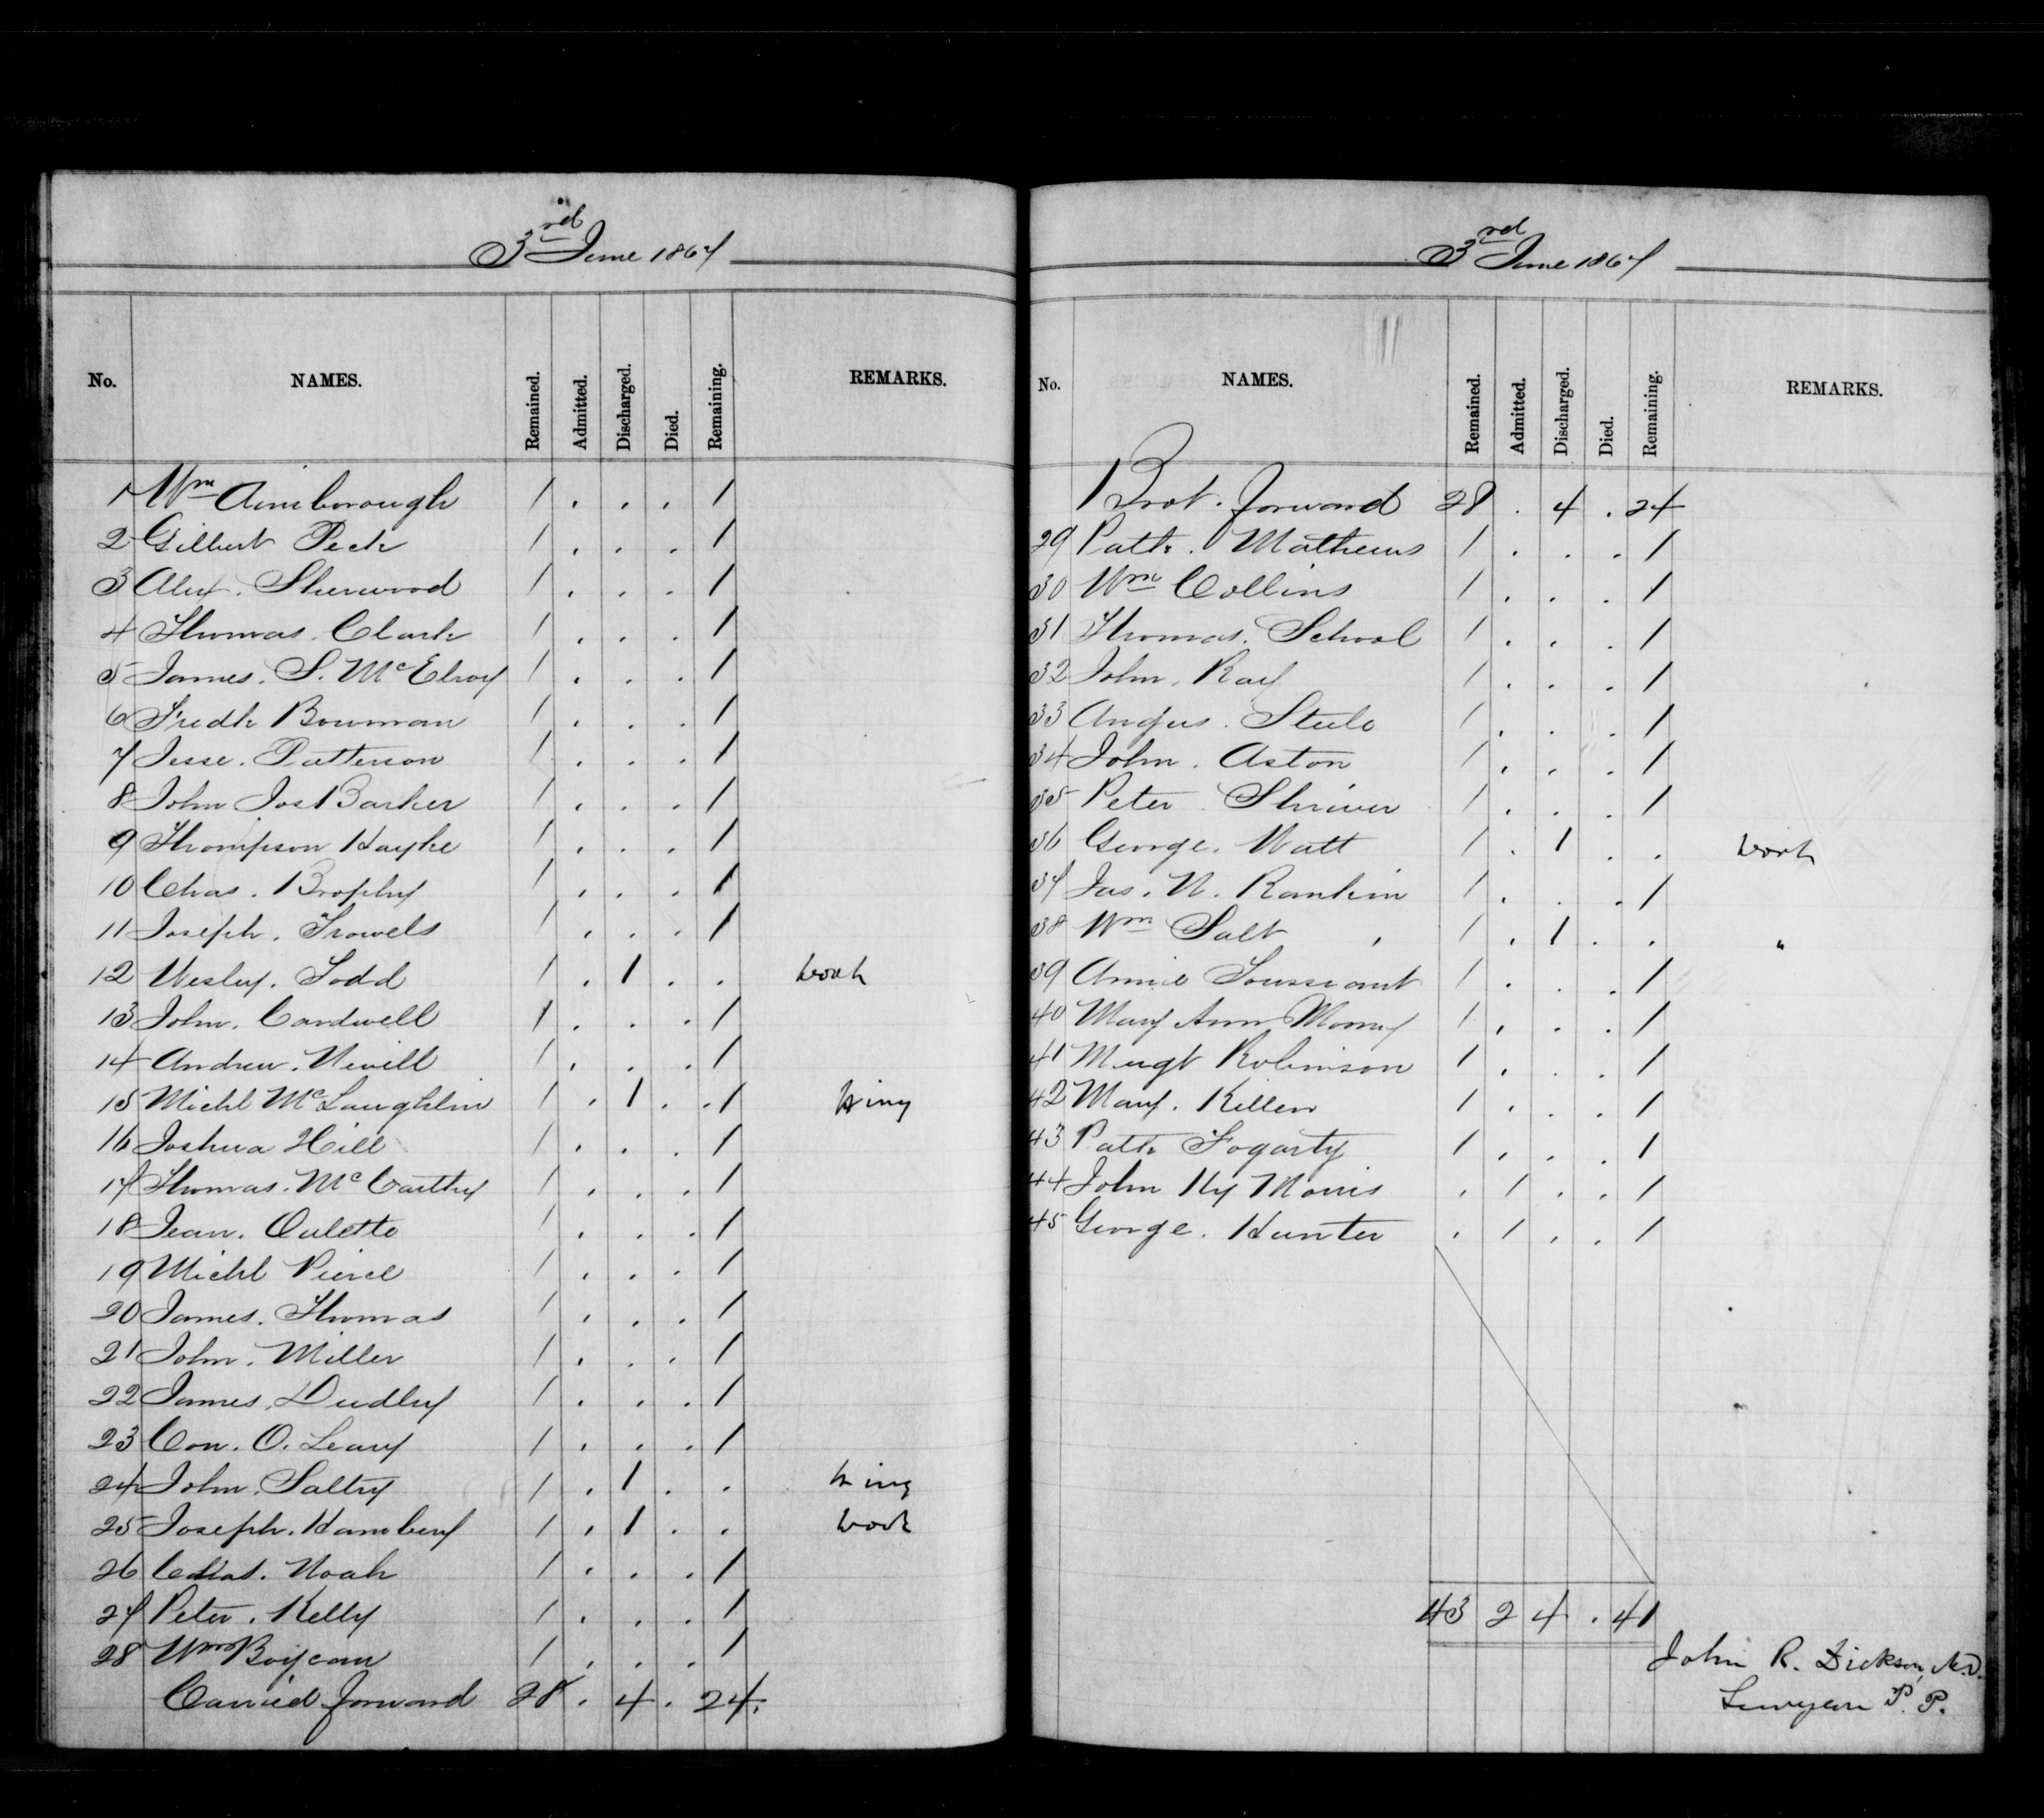 3rd June 1867
No. NAMES. Remained. Admitted. Discharged. Died. Remaining. REMARKS.
1 Wm Ainsborough 1 . . . 1
2 Gilbert Peck 1 . . . 1
3 Alex. Sherwood 1 . . . 1
4 Thomas. Clark 1 . . . 1
5 James. S. McElroy 1 . . . 1
6 Fredk Bowman 1 . . . 1
7 Jesse. Patterson 1 . . . 1
8 John Jos Barker 1 . . . 1
9 Thompson 1 . . . 1
10 Chas. Brophy 1 . . . 1
11 Joseph. Trowels 1 . . . 1
12 Wesley. Todd 1 . 1 . . work
13 John. Cardwell 1 . . . 1
14 Andrew. Nevill 1 . . . 1
15 Michl McLaughlin 1 . 1 . . 1
16 Joshua Hill 1 . . . 1
17 Thomas. McCarthy 1 . . . 1
18 Jean. Oulette 1 . . . 1
19 Michl Pierce 1 . . . 1
20 James. Thomas 1 . . . 1
21 John. Miller 1 . . . 1
22 James. Dudley 1 . . . 1
23 Con. O. Leary 1 . . . 1
24 John. Saltry 1 . 1 . .
25 Joseph. 1 . 1 . . work
26 Chas. Noah 1 . . . 1
27 Peter. Kelly 1 . . . 1
28 Wm 1 . . . 1
Carried forward 28 . 4 . 24.
3rd June 1867
No. NAMES. Remained. Admitted. Discharged. Died. Remaining. REMARKS.
Brot. forward 28 . 4 . 24
29 Patk. Mathews 1 . . . 1
30 Wm Collins 1 . . . 1
31 Thomas. School 1 . . . 1
32 John. Ray 1 . . . 1
33 Angus. Steele 1 . . . 1
34 John. Aston 1 . . . 1
35 Peter. Shriver 1 . . . 1
36 George. Watt 1 . 1 . . work
37 Jas. N. Rankin 1 . . . 1
38 Wm Salt 1 . 1 . . "
39 Annie Toussiant 1 . . . 1
40 Mary Ann Morney 1 . . . 1
41 Margt Robinson 1 . . . 1
42 Mary. Killen 1 . . . 1
43 Patk Fogarty 1 . . . 1
44 John Hy Morris . 1 . . 1
45 George. Hunter . 1 . . 1
43 2 4 . 41
John R. Dickson, M.D.
Surgeon P. P.